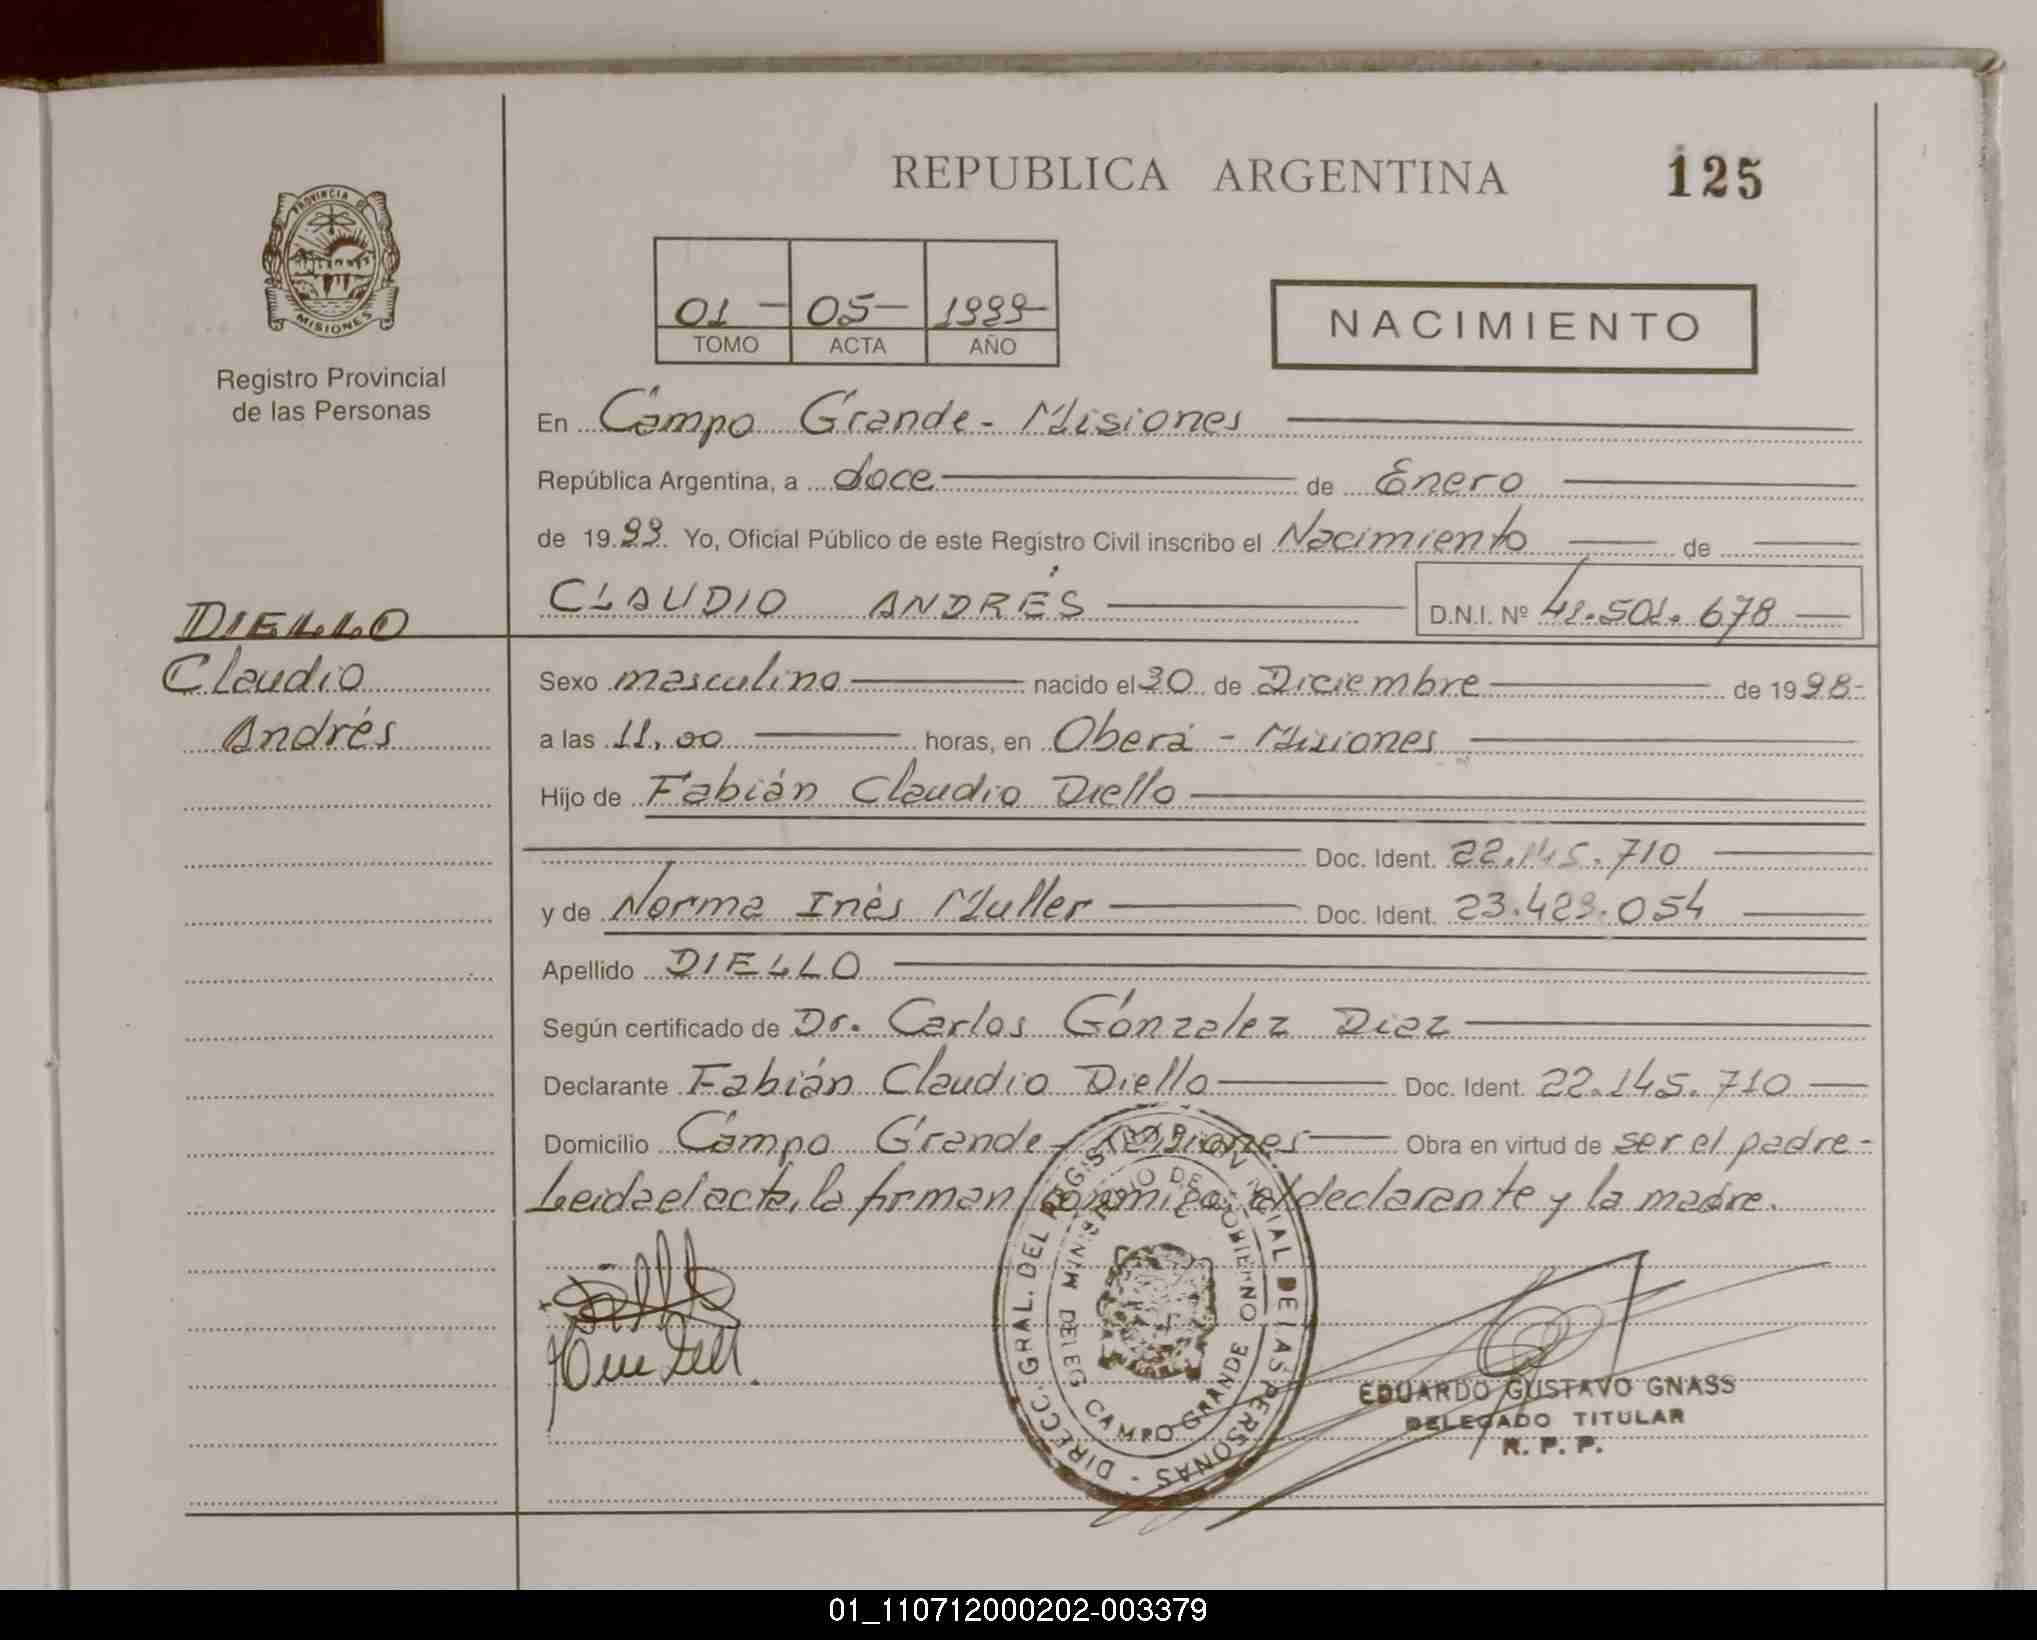 REPUBLICA ARGENTINA
125
PROVINCIA DE
MISIONES
Registro Provincial
de las Personas
01 - 05 - 1999 -
TOMO ACTA AÑO
NACIMIENTO
En Campo Grande - Misiones
República Argentina, a doce de Enero
de 19 99. Yo, Oficial Público de este Registro Civil inscribo el Nacimiento de
CLAUDIO ANDRÉS D.N.I. Nº 41.501.678
DIELLO
Claudio
Andrés
Sexo masculino nacido el 30 de Diciembre de 19 98-
a las 11,00 horas, en Oberá - Misiones
Hijo de Fabián Claudio Diello
Doc. Ident. 22.145.710
y de Norma Inés Muller Doc. Ident. 23.429.054
Apellido DIELLO
Según certificado de Dr. Carlos Gónzalez Diaz
Declarante Fabián Claudio Diello Doc. Ident. 22.145.710
Domicilio Campo Grande - Misiones Obra en virtud de ser el padre -
Leida el acta, la firman conmigo el declarante y la madre.
DIRECC. GRAL. DEL REGISTRO PROVINCIAL DE LAS PERSONAS -
MINISTERIO DE GOBIERNO
DELEG CAMPO GRANDE
EDUARDO GUSTAVO GNASS
DELEGADO TITULAR
R. P. P.
01_110712000202-003379